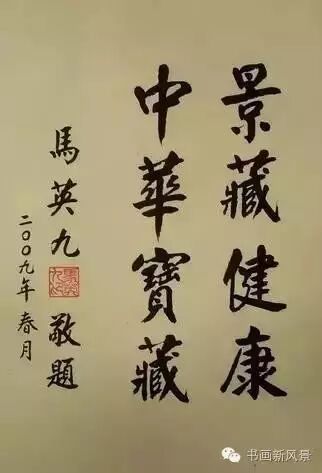 景藏健康
中華寶藏
馬英九敬題
二〇〇九年 春月
书画新风景